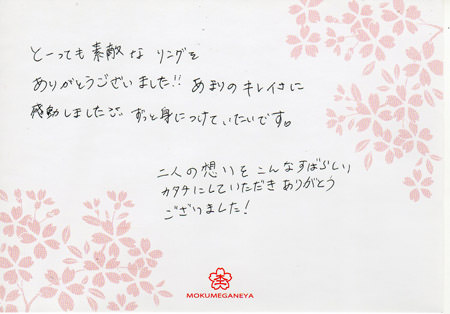 とーっても素敵なリングを
ありがとうございました!! あまりのキレイさに
感動しました ずっと身につけていたいです。
二人の想いをこんなすばらしい
カタチにしていただきありがとう
ございました!
MOKUMEGANEYA